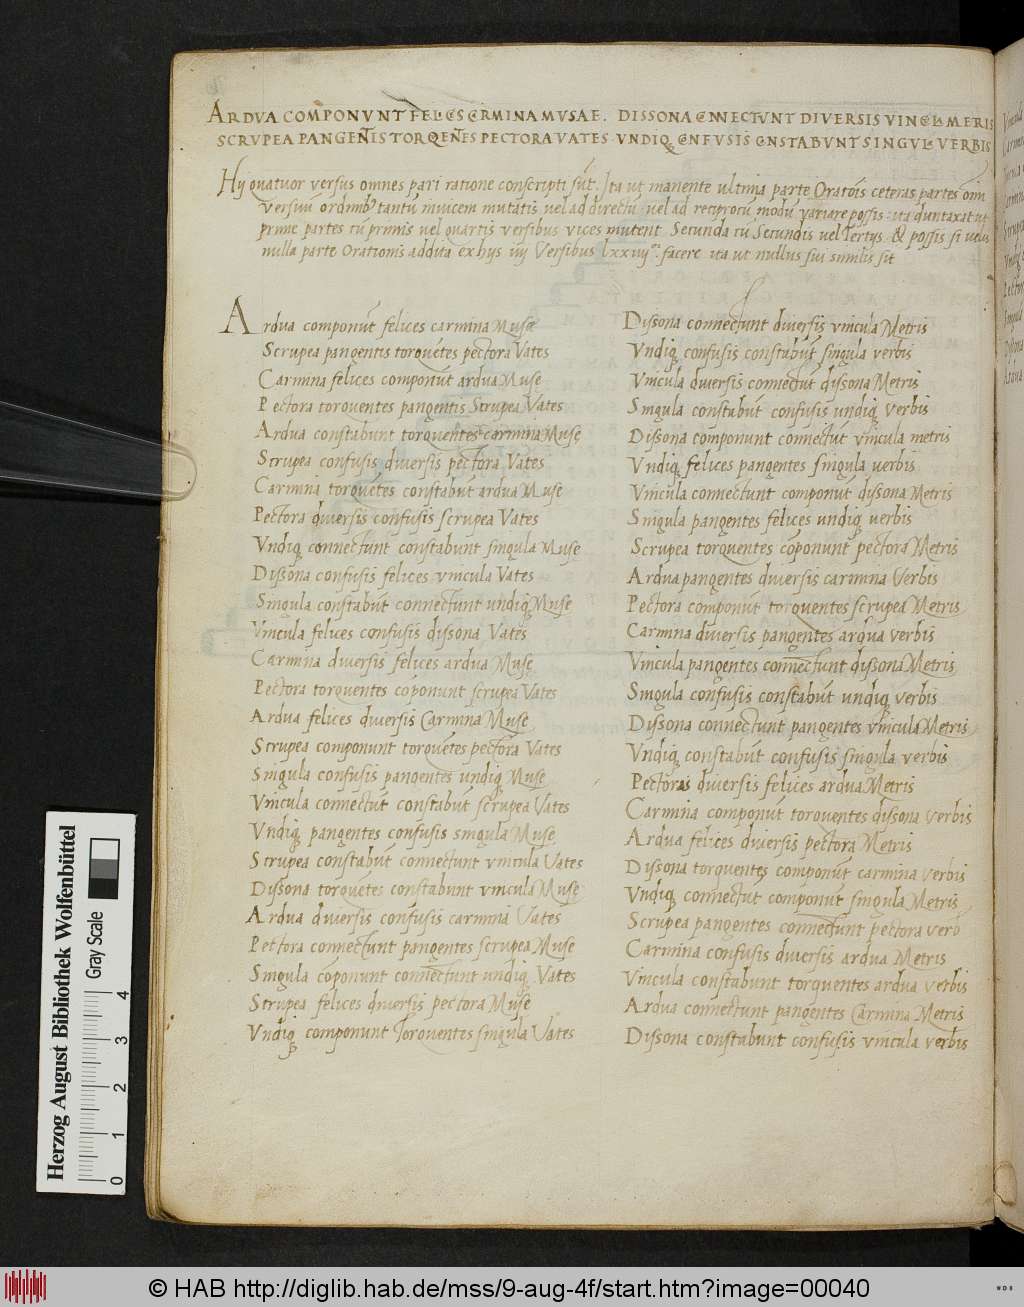 ARDVA COMPONVNT FELCES CRMINA MVSAE. DISSONA CNNECTVNT DIVERSIS VINCLA METRIS
SCRVPEA PANGENTIS TORQENES PECTORA VATES VNDIQ CNFVSIS CNSTABVNT SINGVLA VERBIS
Hij quatuor versus omnes pari ratione conscripti sūt. Ita ut manente ultima parte Orationis ceteras partes
versuū ordinibꝰ tantū invicem mutatis vel ad directū vel ad reciprocū modū variare possis: ita duntaxat ut
prime partes cū primis vel quartis versibus vices mutent Secunda cū Secundis vel Tertys & possis si velis
nulla parte Orationis addita ex hys iiij Versibus lxxiiij facere ita ut nullus sui similis sit
Ardua componūt felices carmina Musæ
Scrupea pangentes torquētes pectora Vates
Carmina felices componūt ardua Muse
Pectora torquentes pangentis Scrupea Vates
Ardua constabunt torquentes carmina Muse
Scrupea confusis diversis pectora Vates
Carmina torquētes constabūt ardua Muse
Pectora diversis confusis scrupea Vates
Vndiq connectunt constabunt singula Muse
Dissona confusis felices vincula Vates
Singula constabūt connectunt undiq Muse
Vincula felices confusis dissona Vates
Carmina diversis felices ardua Muse
Pectora torquentes cōponunt scrupea Vates
Ardua felices diversis Carmina Muse
Scrupea componunt torquētes pectora Vates
Singula confusis pangentes undiq Muse
Vincula connectūt constabūt scrupea Vates
Vndiq pangentes confusis singula Muse
Scrupea constabūt connectunt vincula Vates
Dissona torquētes constabunt vincula Muse
Ardua diversis confusis carmina Vates
Pectora connectunt pangentes scrupea Muse
Singula cōponunt connectunt undiq Vates
Scrupea felices diversis pectora Muse
Vndiq componunt Torquentes singula Vates
Dissona connectunt diversis vincula Metris
Vndiq confusis constabūt singula verbis
Vincula diversis connectūt dissona Metris
Singula constabūt confusis undiq verbis
Dissona componunt connectūt vincula metris
Vndiq felices pangentes singula verbis
Vincula connectunt componūt dissona Metris
Singula pangentes felices undiq verbis
Scrupea torquentes cōponunt pectora Metris
Ardua pangentes diversis carmina Verbis
Pectora componūt torquentes scrupea Metris
Carmina diversis pangentes ardua verbis
Vincula pangentes connectunt dissona Metris
Singula confusis constabūt undiq verbis
Dissona connectunt pangentes vincula Metris
Vndiq constabūt confusis singula verbis
Pectora diversis felices ardua Metris
Carmina componūt torquentes dissona verbis
Ardua felices diversis pectora Metris
Dissona torquentes componūt carmina verbis
Vndiq connectūt componūt singula Metris
Scrupea pangentes connectunt pectora verb
Carmina confusis diversis ardua Metris
Vincula constabūt torquentes ardua verbis
Ardua connectunt pangentes Carmina Metris
Dissona constabunt confusis vincula verbis
Herzog August Bibliothek Wolfenbüttel
Gray Scale
0 1 2 3 4
© HAB http://diglib.hab.de/mss/9-aug-4f/start.htm?image=00040